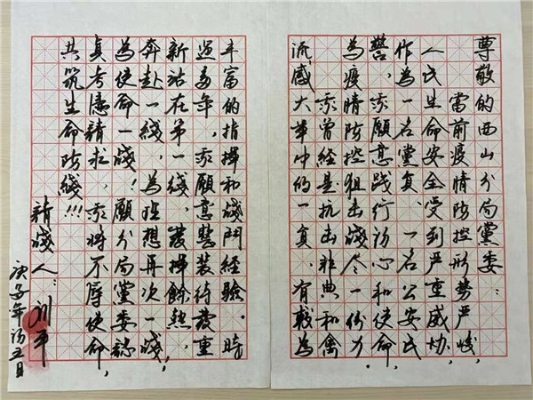 尊敬的西山分局黨委：
当前疫情防控形势严峻，
人民生命安全受到严重威胁.
作为一名黨员、一名公安民
警，我愿意践行初心和使命
为疫情防控狙击战尽一份力.
我曾经是抗击非典和禽
流感大军中的一员，有较为
丰富的指揮和战鬥经验.时
过多年，我愿意整装待发重
新站在第一线，發揮餘热，
奔赴一线，为理想再次一战，
为使命一战！愿分局黨委認
真考慮請求，我将不辱使命，
共筑生命防线!!!
請战人：刘平
庚子年初五日